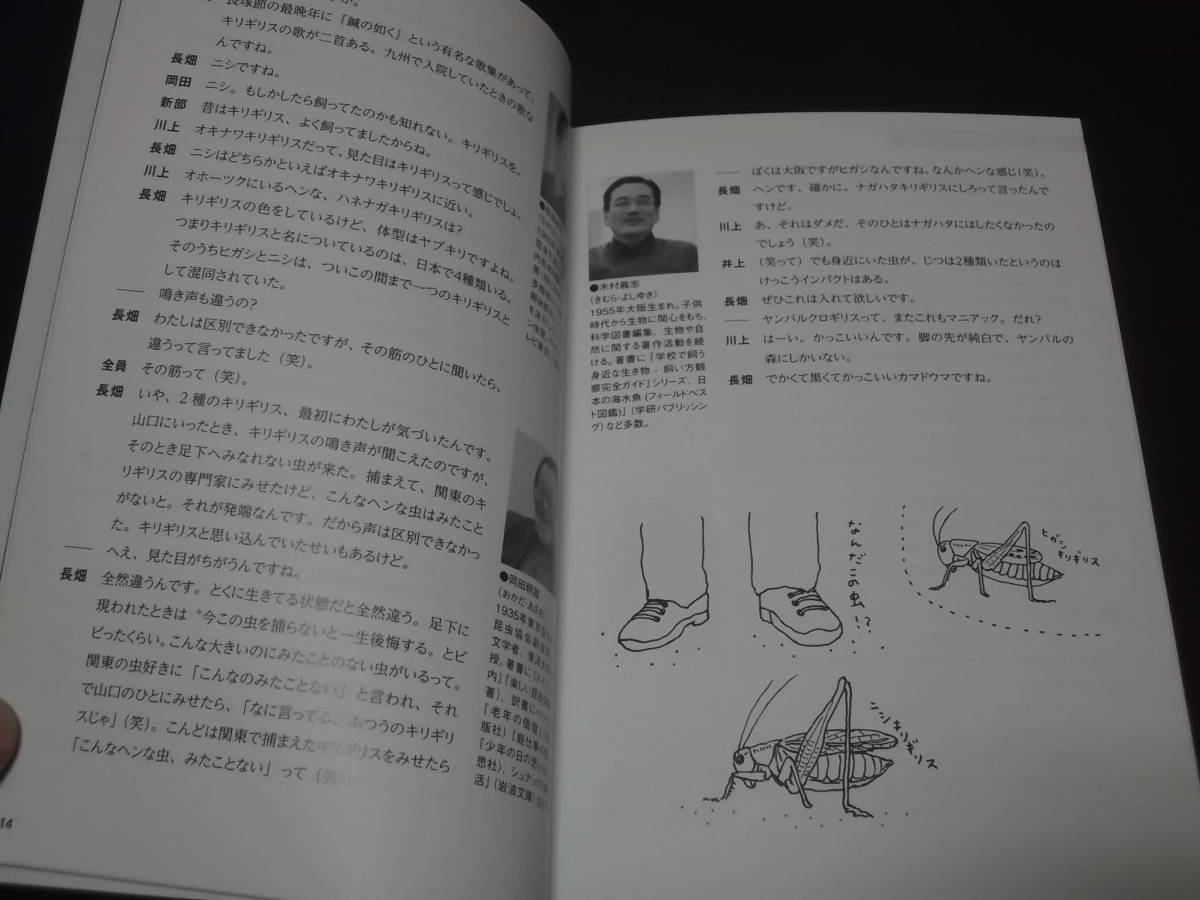 長塚節の最晩年に『鍼の如く』という有名な歌集があって、
キリギリスの歌が二首ある。九州で入院していたときの歌な
んですね。
長畑 ニシですね。
岡田 ニシ。もしかしたら飼ってたのかも知れない。キリギリスを。
新部 昔はキリギリス、よく飼ってましたからね。
川上 オキナワキリギリスだって、見た目はキリギリスって感じでしょ。
長畑 ニシはどちらかといえばオキナワキリギリスに近い。
川上 オホーツクにいるヘンな、ハネナガキリギリスは?
長畑 キリギリスの色をしているけど、体型はヤブキリですよね。
つまりキリギリスと名についているのは、日本で4種類いる。
そのうちヒガシとニシは、ついこの間まで一つのキリギリスと
して混同されていた。
―― 鳴き声も違うの?
長畑 わたしは区別できなかったですが、その筋のひとに聞いたら、
違うって言ってました(笑)。
全員 その筋って(笑)。
長畑 いや、2種のキリギリス、最初にわたしが気づいたんです。
山口にいったとき、キリギリスの鳴き声が聞こえたのですが、
そのとき足下へみなれない虫が来た。捕まえて、関東のキ
リギリスの専門家にみせたけど、こんなヘンな虫はみたこと
がないと。それが発端なんです。だから声は区別できなかっ
た。キリギリスと思い込んでいたせいもあるけど。
―― へえ、見た目がちがうんですね。
長畑 全然違うんです。とくに生きてる状態だと全然違う。足下に
現われたときは〝今この虫を捕らないと一生後悔する。とビ
ビったくらい。こんな大きいのにみたことのない虫がいるって。
関東の虫好きに「こんなのみたことない」と言われ、それ
で山口のひとにみせたら、「なに言ってる、ふつうのキリギリ
スじゃ」(笑)。こんどは関東で捕まえたキリギリスをみせたら
「こんなヘンな虫、みたことない」って(笑)
14
●岡田朝雄
(おかだ・あさお)
1935年東京
昆虫協会副会
文学者、東洋大
授。著書に『ドイツ
内』『楽しい昆虫
著)、訳書に
『老年の価値』
版社)『庭仕事の
『少年の日の思い
思社)、シュナック
活』(岩波文庫)
●木村義志
(きむら・よしゆき)
1955年大阪生まれ。子供
時代から生物に関心をもち、
科学図書編集、生物や自
然に関する著作活動を続
ける。著書に『学校で飼う
身近な生き物 - 飼い方観
察完全ガイド』シリーズ、日
本の海水魚 (フィールドベス
ト図鑑)』(学研パブリッシン
グ)など多数。
―― ぼくは大阪ですがヒガシなんですね。なんかヘンな感じ(笑)。
長畑 ヘンです、確かに。ナガハタキリギリスにしろって言ったんで
すけど。
川上 あ、それはダメだ、そのひとはナガハタにはしたくなかったの
でしょう(笑)。
井上 (笑って)でも身近にいた虫が、じつは2種類いたというのは
けっこうインパクトはある。
長畑 ぜひこれは入れて欲しいです。
―― ヤンバルクロギリスって、またこれもマニアック。だれ?
川上 はーい。かっこいいんです。脚の先が純白で、ヤンバルの
森にしかいない。
長畑 でかくて黒くてかっこいいカマドウマですね。
なんだこの虫!?
ヒガシ
キリギリス
ニシキリギリス